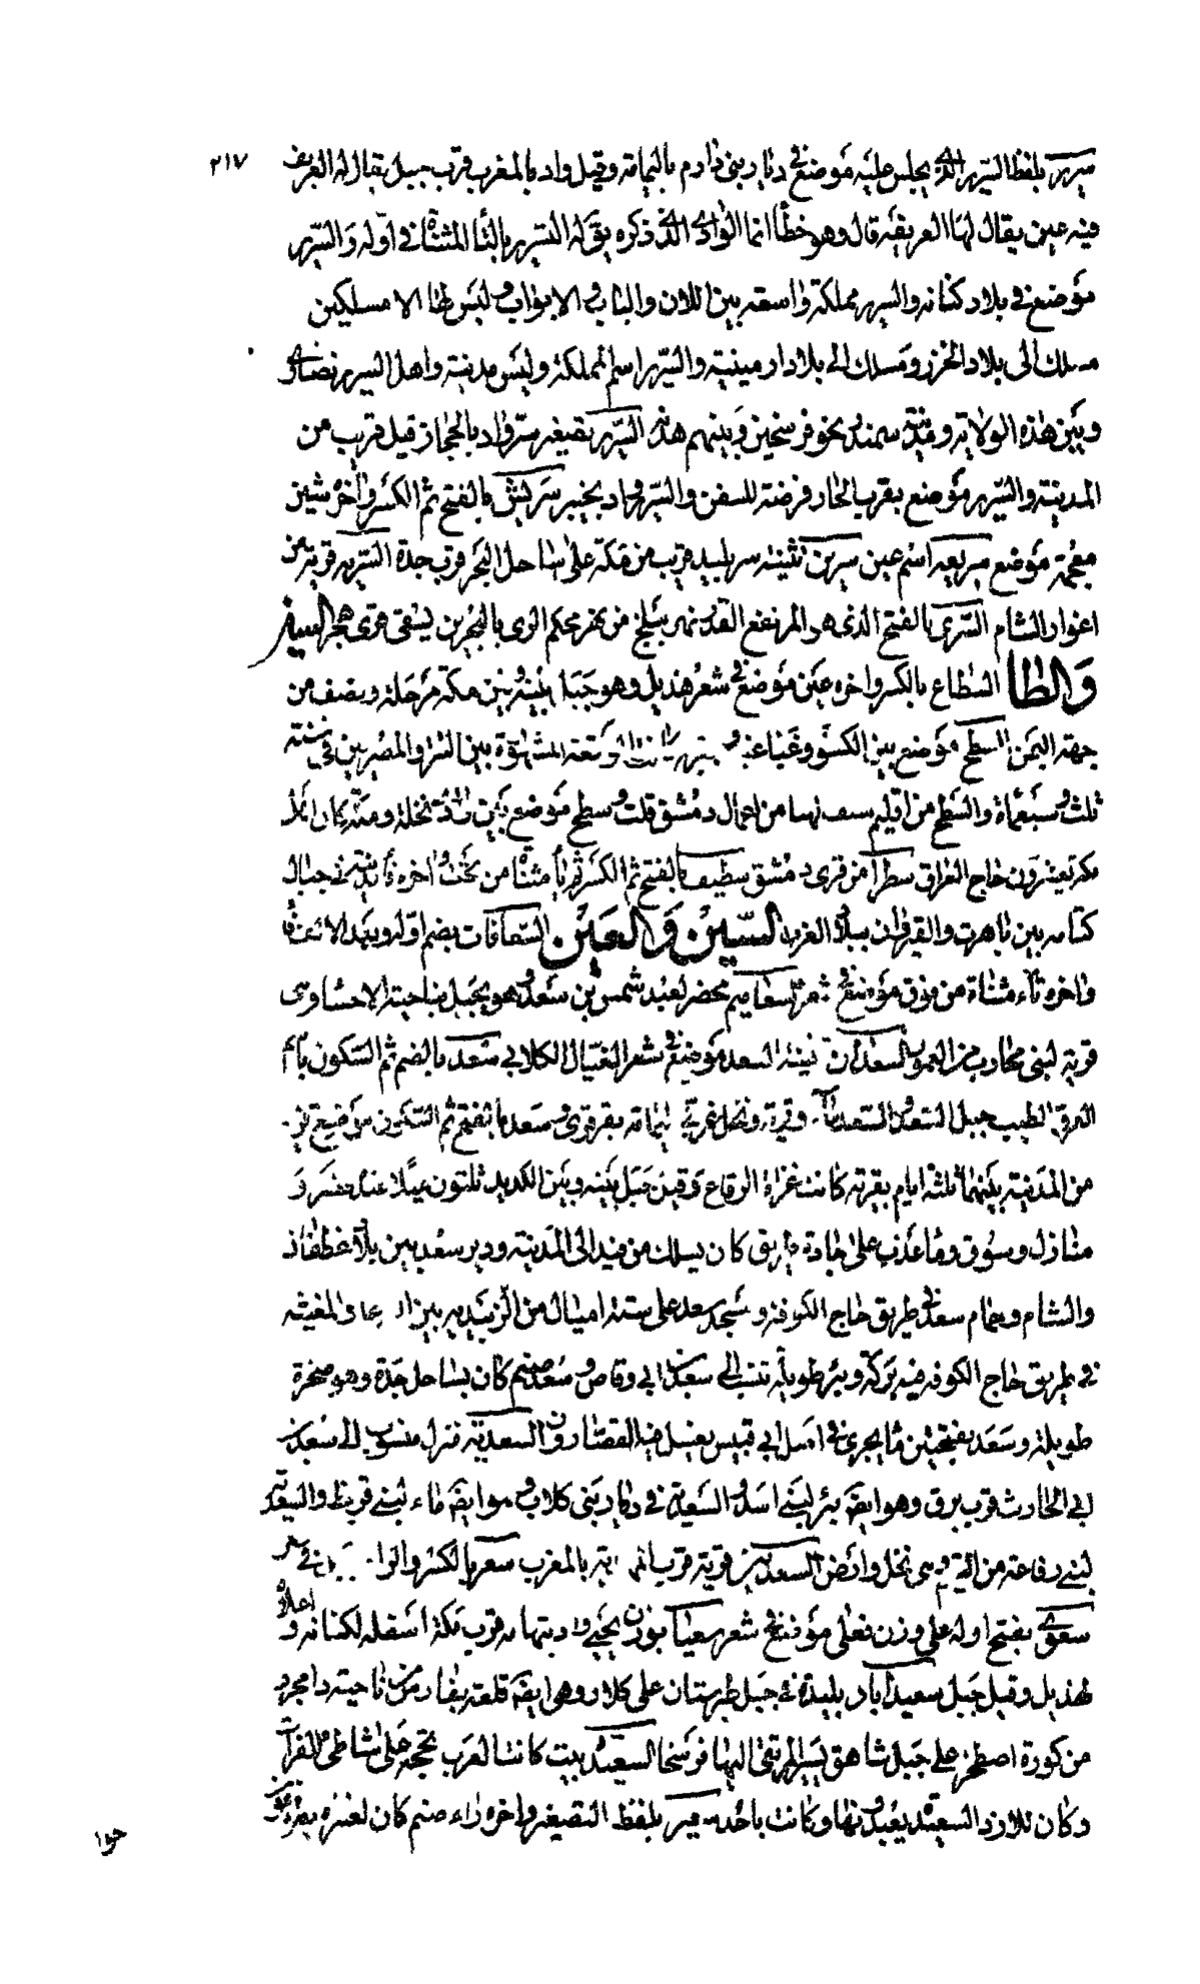 ٢١٧
سرير بلفظ السرير الذي يجلس عليه موضع في ديار بني دارم باليمامة وقيل واد بالمغرب قرب جبل يقال له الغريف
فيه عين يقال لها الغريفه قال وهو خطأ انما الوادي الذي ذكره يقال له التسرير بالتا المثناة في اوله والسرير
موضع في بلاد كنانه والسرير مملكة واسعه بين اللان والباب و الابواب وليس لها الا مسلكين
مسلك الى بلاد الخزر ومسلك الى بلاد ارمينيه والسرير اسم المملكة وليس مدينة واهل السرير نصاري
وبين هذه الولاية ومدينة سمندر نحو فرسخين وبينهم هدنه السرير تصغير سر واد بالحجاز قيل قريب من
المدينة والسرير موضع بقرب الجار فرضة للسفن والسرير واد بخيبر سريش بالفتح ثم الكسر واخره شين
معجمة موضع سريعه اسم عين سرين تثنية سر بليد قريب من مكة على ساحل البحر قرب جدة السرير قرية من
اغوار الشام السري بالفتح الذي هو المرتفع القدر نهر يتخلج من نهر محلم الذي بالبحرين يسقى قرى هجر السين
والطا السطاع بالكسر واخره عين موضع في شعر هذيل وهو جبل بينه وبين مكة مرحلة ونصف من
جهة اليمن السطح موضع بين الكسوة وغباغب كانت وقعة المشهورة بين التتر والمصريين في سنة
ثلث وسبعمأة والسطح من اقليم من اعمال دمشق قلت وسطح موضع بين نخلة ومكة كان
حاج العراق سطرا من قرى دمشق سطيف بالفتح ثم الكسر ثم يا مثناة من تحت واخره فا مدينة في جبال
كتامه بين تاهرت والقيروان ببلاد الغرب السين والعين السعافات بضم اوله وبعد الالف فا
واخره تاء مثناة من فوق موضع في شعر محضر لعبد شمس بن سعد وهو بجبل بناحية الاحسا وسى
قرية لبني محارب من السعدان تثنية السعد موضع في شعر القتال الكلابي سعد بالضم ثم السكون
الطيب جبل السعد وقرية ونخل غربي اليمامة بقرقرى وسعد بالفتح ثم السكون موضع قرب
من المدينة بينهما ثلثة ايام بقربه كانت غزاة الرقاع وقيل جبل بينه وبين الكديد ثلثون ميلا عنده قصر و
منازل وسوق وما عذب على جادة طريق كان يسلك من فيد الى المدينة ودير سعد بين بلاد غطفان
والشام وحمام سعد في طريق حاج الكوفة ومسجد سعد على ستة اميال من الزبيديه بين القرعا والمغيثه
في طريق حاج الكوفه فيه بركة وبئر طويلة تنسب الى سعد بن ابي وقاص وسعد صنم كان بساحل جدة وهو صخرة
طويلة وسعد بفتحتين ما يجري في اصل ابي قبيس يغسل فيه القصارون السعدية منزل منسوب الى سعد بن
ابي الحارث قرب برق وهو ايضا بئر لبني اسد والسعدية في ديار بني كلاب وهو ايضا ماء لبني قريظ والسعدية
لبني رفاعة من التيم وهي نخل وارض السعديين قرية قرب المهدية بالمغرب سعر بالكسر والرا في شعر
سعوى بفتح اوله على وزن فعلى موضع في شعر سعيا بوزن يحيى واد بتهامه قرب مكة اسفله لكنانه واعلاه
لهذيل وقيل جبل سعيد اباد بليدة في جبل طبرستان على كلار وهو ايضا قلعة بفارس من ناحية رامجرد
من كورة اصطخر على جبل شاهق يسير المرتقى اليها فرسخا السعيدة بيت كانت العرب تحجه على شاطئ الفرات
وكان للازد السعيده يعبدونها وكانت باحد سعير بلفظ التصغير واخره راء صنم كان لعنزه يقدم عنز
حوا